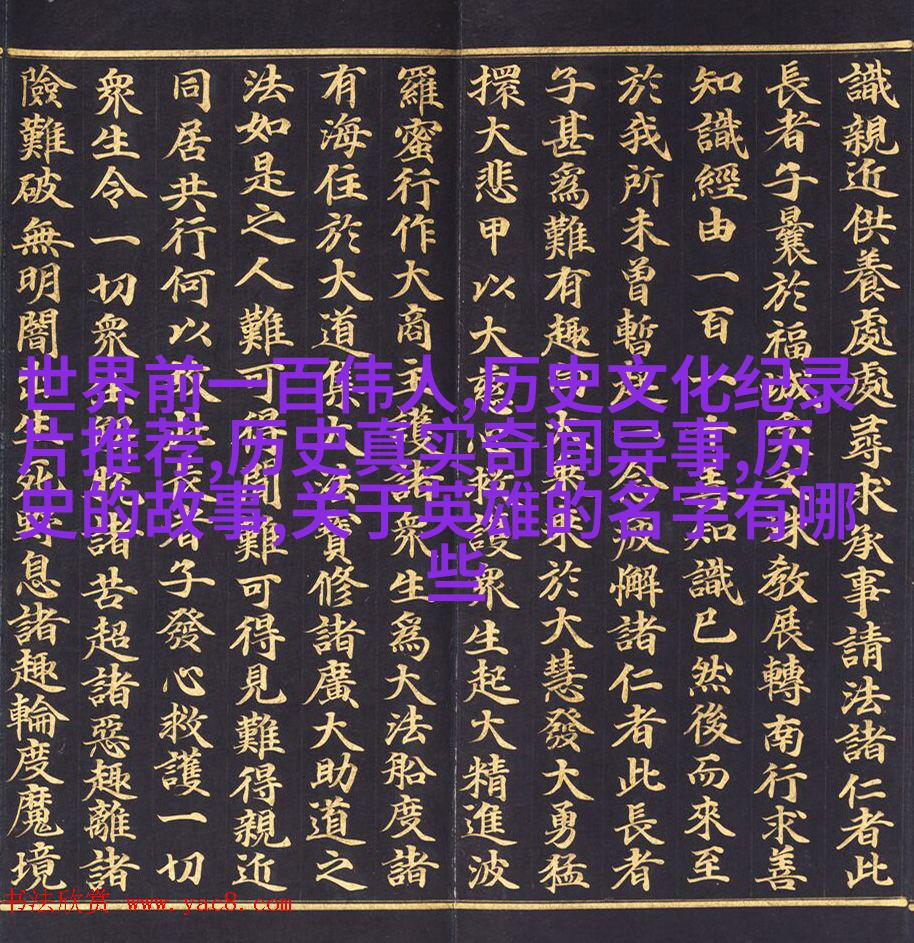 識親近供養處處尋求承事請法諸仁者此
長者子曩於福城受文殊教展轉南行求善
知識經由一百一十善知識已然後而來至
於我所未曾暫起一念疲懈諸仁者此長者
子甚為難有趣向大乘乘於大慧發大勇猛
擐大悲甲以大慈心救護眾生起大精進波
羅蜜行作大商主護諸眾生為大法船度諸
有海住於大道集大法寶修諸廣大助道之
法如是之人難可得聞難可得見難得親近
同居共行何以故此長者子發心救護一切
眾生令一切眾生解脫諸苦超諸惡趣離諸
險難破無明闇出生死野息諸趣輪度魔境
世界前一百伟人,历史文化纪录
片推荐,历史真实奇闻异事,历
史的故事,关于英雄的名字有哪
些
书法欣赏 www.yac8.com